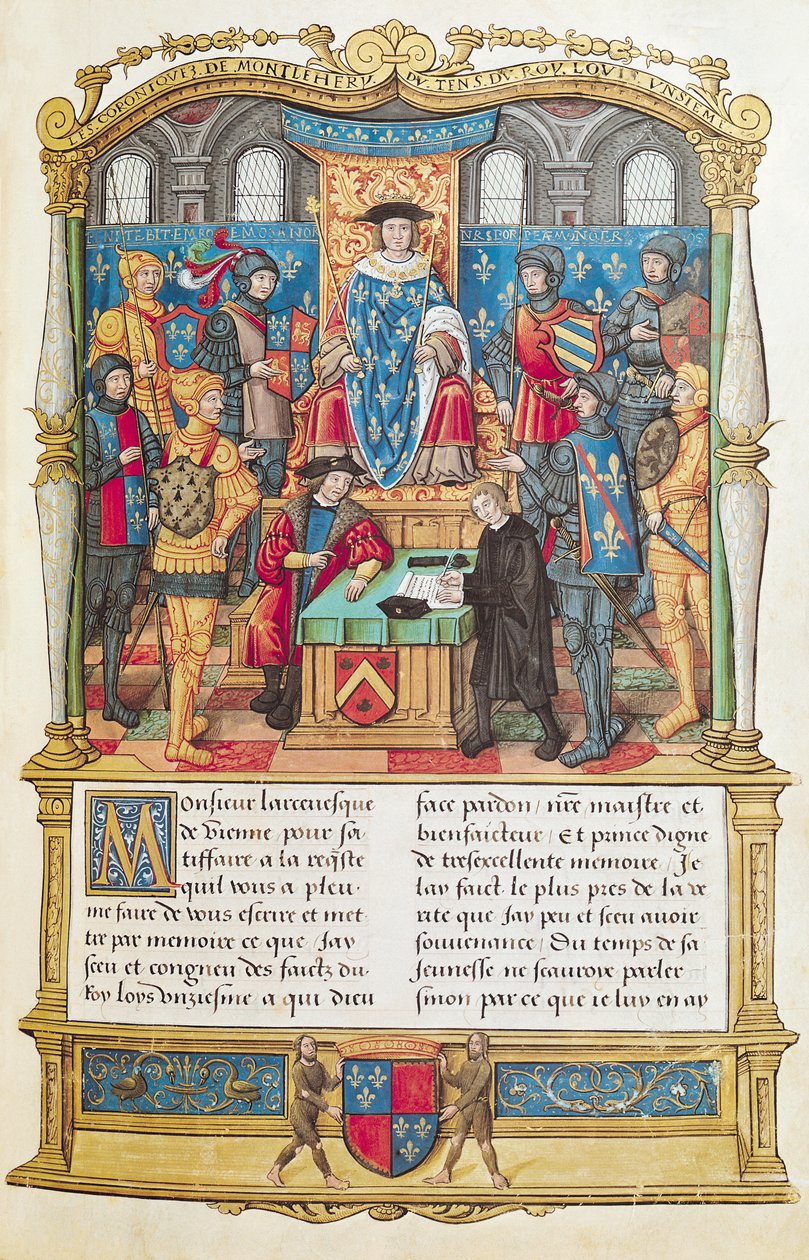 LES CORONIQVES DE MONTLEHERV DV TENS DV ROY LOVIS VNSIEME
Monsieur larcevesque
de vienne pour sa-
tiffaire a la reqste
quil vous a pleu
me faire de vous escrire et met-
tre par memoire ce que Jay
sceu et congneu des faictz du
Roy loys unziesme a qui dieu
face pardon / nre maistre et
bienfaicteur / Et prince digne
de tresexcellente memoire / Je
lay faict le plus pres de la ve
rite que Jay peu et sceu avoir
souvenance / Du temps de sa
Jeunesse ne scauroye parler
sinon par ce que ie luy en ay